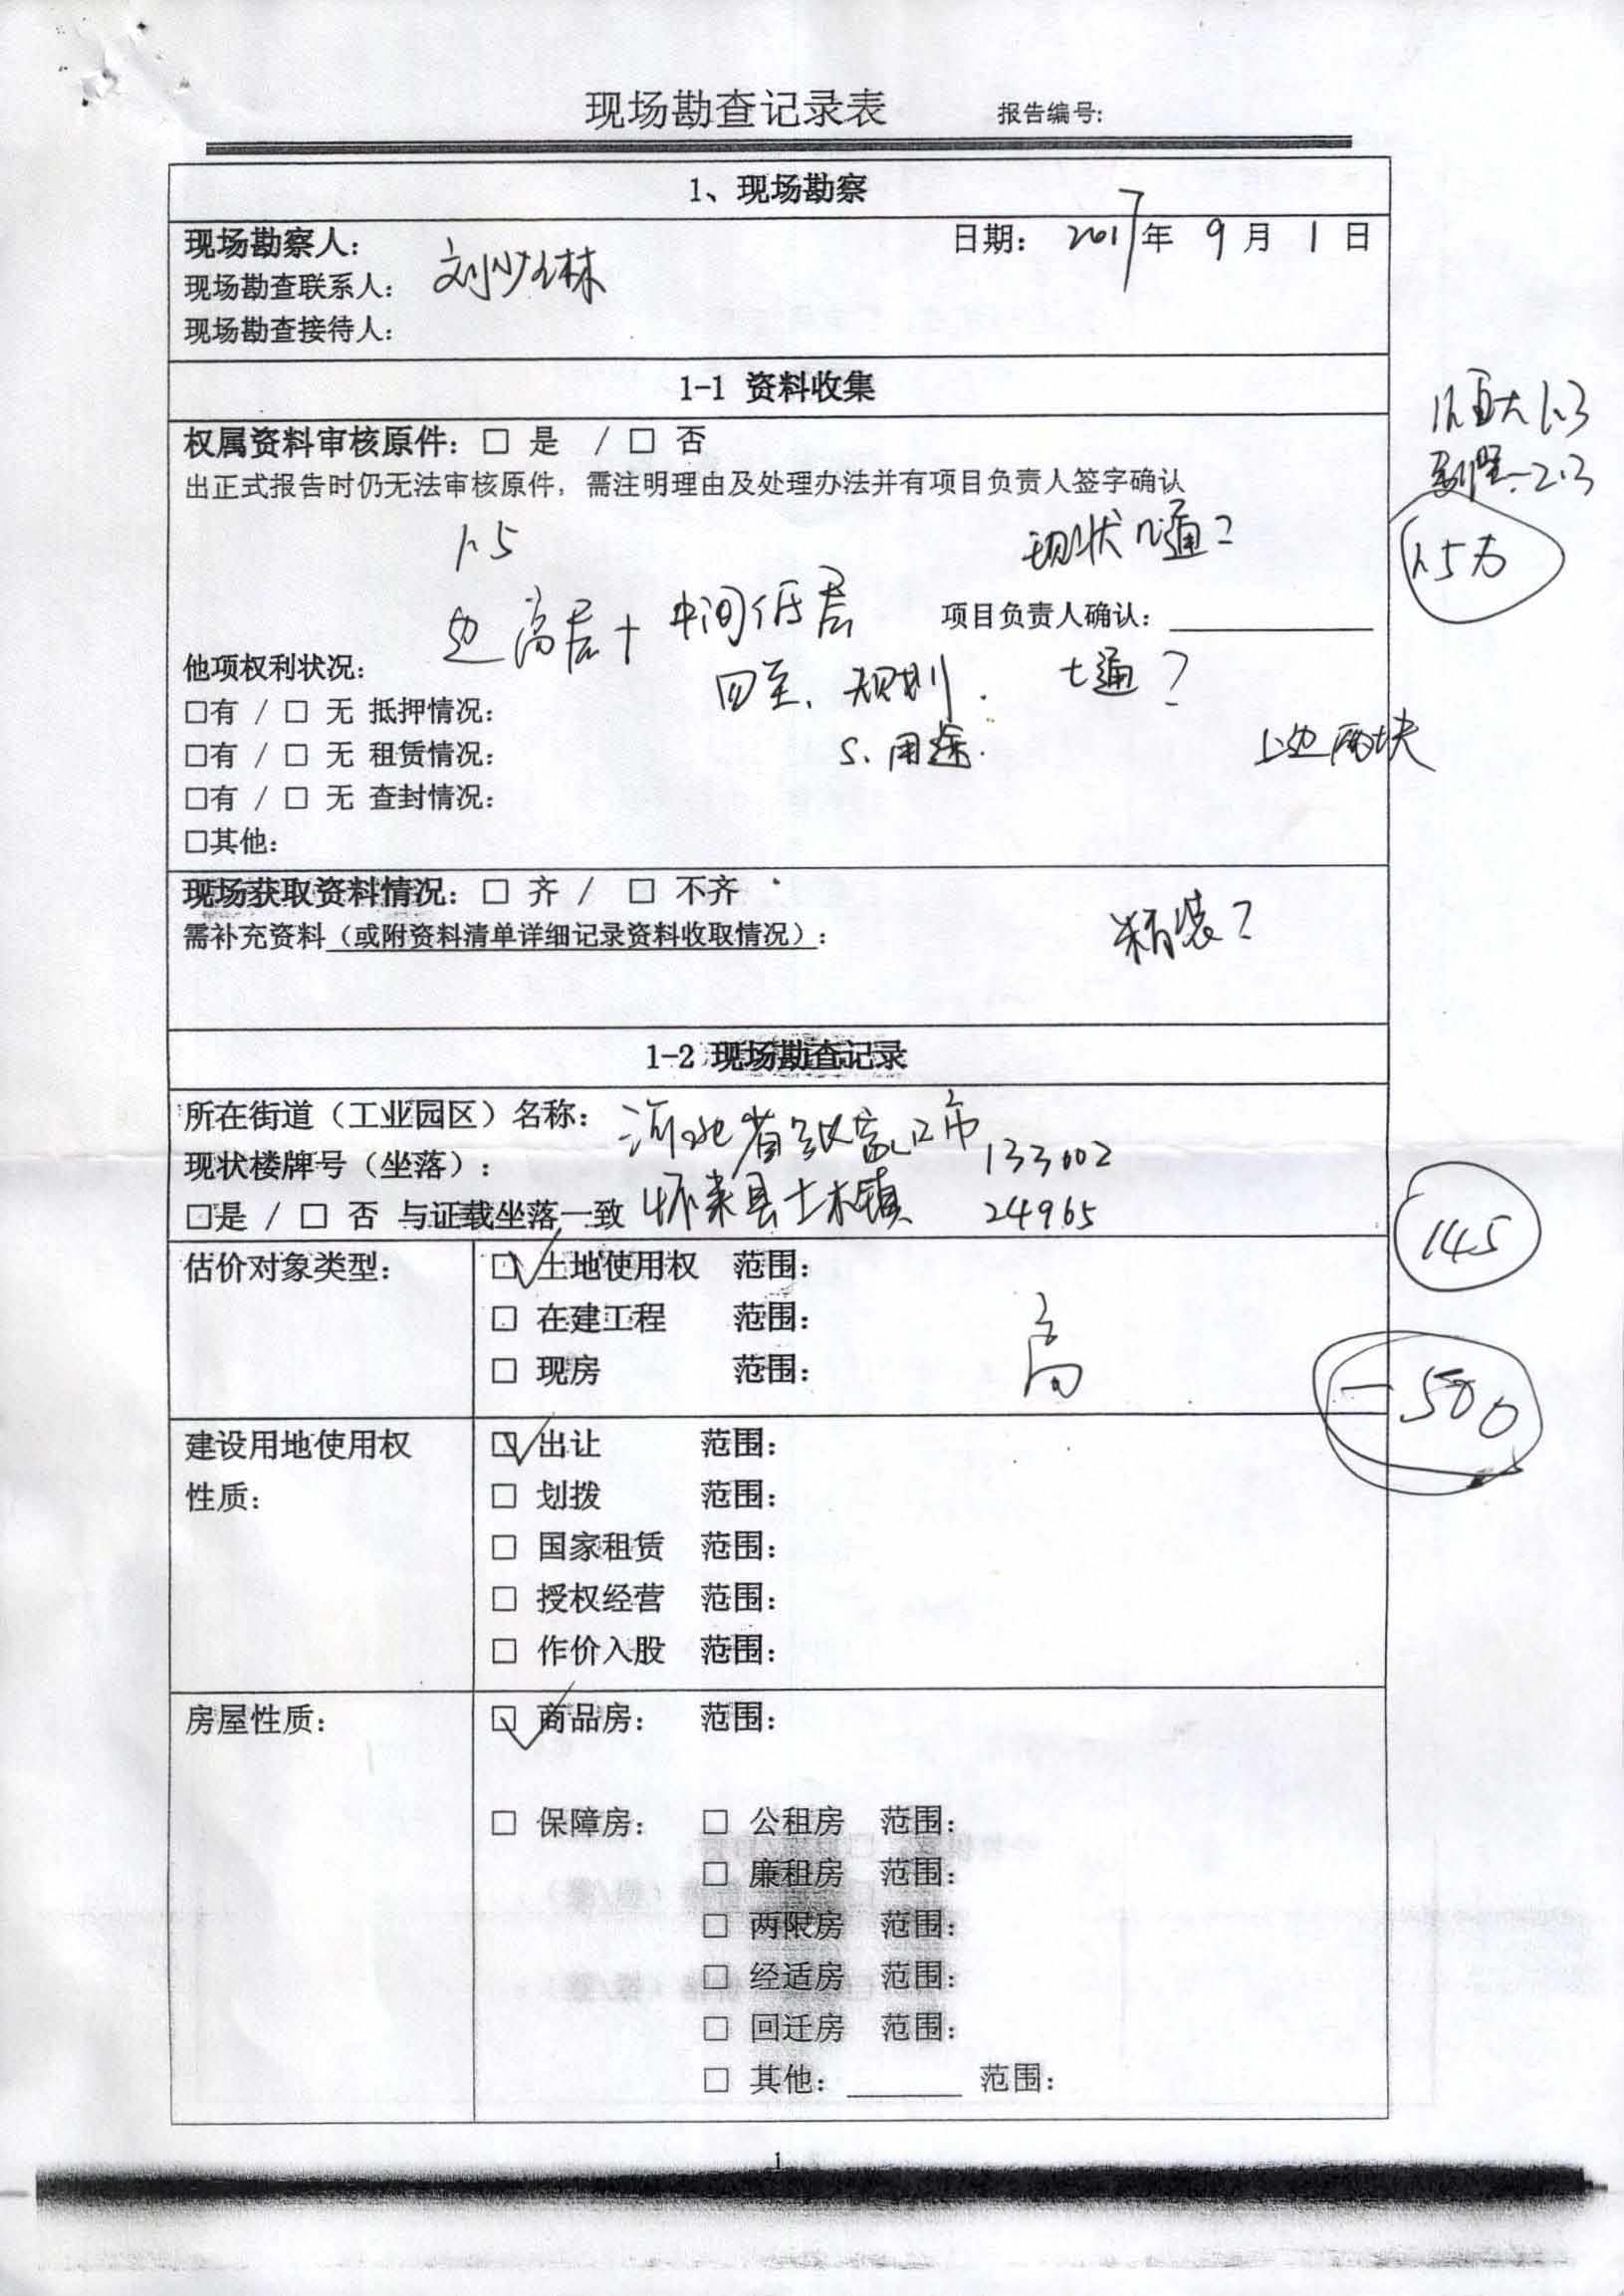 现场勘查记录表 报告编号:
1、现场勘察
现场勘察人: 日期: 2017年 9月 1日
现场勘查联系人: 刘少林
现场勘查接待人:
1-1 资料收集
权属资料审核原件: □ 是 / □ 否
出正式报告时仍无法审核原件, 需注明理由及处理办法并有项目负责人签字确认
1.5 现状几通?
1.5万
边高层+中间低层 项目负责人确认:
他项权利状况:
四至、规划. 七通?
□有 / □ 无 抵押情况:
S、用途.
上边两块
□有 / □ 无 租赁情况:
□有 / □ 无 查封情况:
□其他:
现场获取资料情况: □ 齐 / □ 不齐
需补充资料(或附资料清单详细记录资料收取情况): 精装?
1-2 现场勘查记录
所在街道(工业园区)名称: 河北省张家口市
现状楼牌号(坐落): 133002
□是 / □ 否 与证载坐落一致 怀来县土木镇 24965
145
估价对象类型: ☑ 土地使用权 范围:
□ 在建工程 范围:
高
□ 现房 范围:
-500
建设用地使用权 ☑ 出让 范围:
性质: □ 划拨 范围:
□ 国家租赁 范围:
□ 授权经营 范围:
□ 作价入股 范围:
房屋性质: ☑ 商品房: 范围:
□ 保障房: □ 公租房 范围:
□ 廉租房 范围:
□ 两限房 范围:
□ 经适房 范围:
□ 回迁房 范围:
□ 其他: 范围:
1